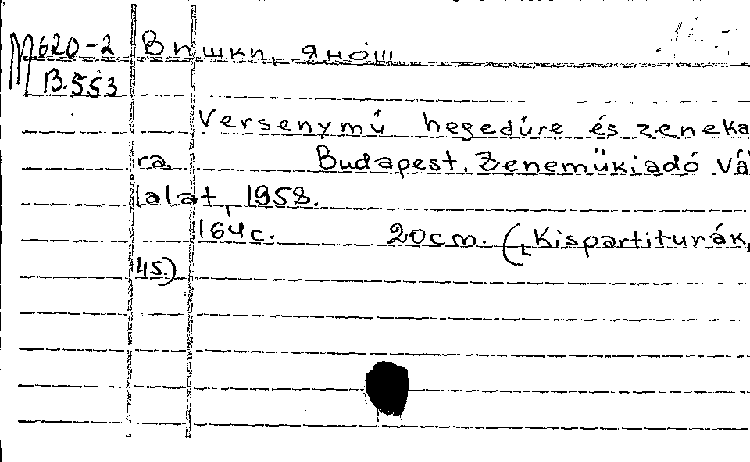 М620-2 Вишки, Янош
В.553
Versenymű hegedűre és zeneka
ra Budapest, Zeneműkiadó Vá
lalat, 1958.
164с. 20cm. (Kispartiturák,
45.)